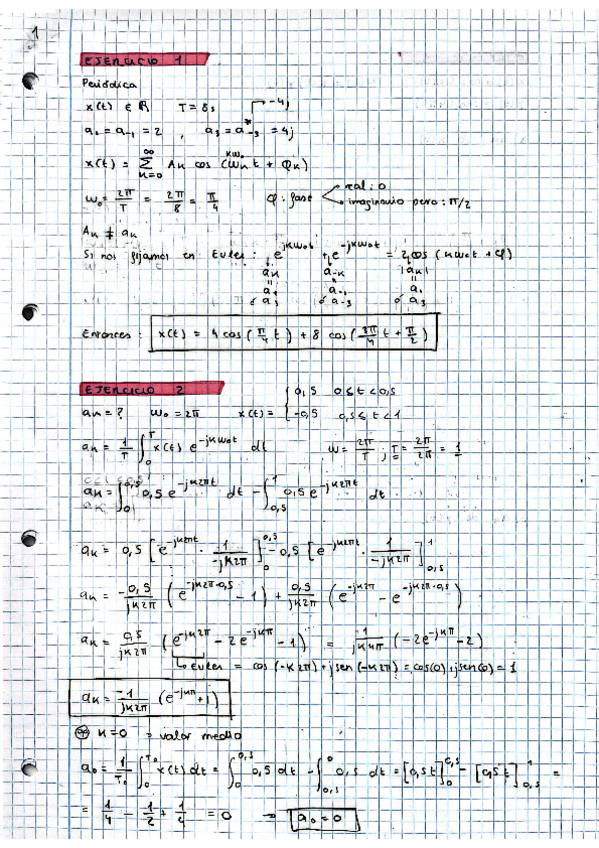 1
EJERCICIO 1
Periódica
x(t) ∈ ℝ T = 8s → -4j
a₁ = a₋₁ = 2 , a₃ = a₋₃* = 4j
x(t) = Σ_{k=0}^{∞} Aₖ cos (ωₖt + φₖ) kω₀
ω₀ = 2π/T = 2π/8 = π/4 φ: fase real: 0
imaginario puro: π/2
Aₖ ≠ aₖ
Si nos fijamos en Euler: e^{jkω₀t} + e^{-jkω₀t} = 2 cos (kω₀t + φ)
aₖ a₋ₖ |aₖ|
a₁ a₋₁ a₁
ó a₃ ó a₋₃ ó a₃
Entonces: x(t) = 4 cos (π/4 t) + 8 cos (3π/4 t + π/2)
EJERCICIO 2
aₖ = ? ω₀ = 2π x(t) = { 0,5 0 ≤ t < 0,5
-0,5 0,5 ≤ t < 1
aₖ = 1/T ∫₀ᵀ x(t) e^{-jkω₀t} dt ω = 2π/T ; T = 2π/2π = 1
aₖ = ∫₀^{0,5} 0,5 e^{-jk2πt} dt - ∫_{0,5}^{1} 0,5 e^{-jk2πt} dt
aₖ = 0,5 [e^{-jk2πt} · 1/-jk2π]₀^{0,5} - 0,5 [e^{-jk2πt} · 1/-jk2π]_{0,5}^{1}
aₖ = -0,5/jk2π (e^{-jk2π·0,5} - 1) + 0,5/jk2π (e^{-jk2π} - e^{-jk2π·0,5})
aₖ = 0,5/jk2π (e^{-jk2π} - 2e^{-jkπ} - 1) = 1/jk4π (-2e^{-jkπ} - 2)
Euler = cos (-k2π) + jsen(-k2π) = cos(0) + jsen(0) = 1
aₖ = -1/jk2π (e^{-jkπ} + 1)
k=0 = valor medio
a₀ = 1/T₀ ∫₀^{T₀} x(t) dt = ∫₀^{0,5} 0,5 dt - ∫_{0,5}^{0} 0,5 dt = [0,5t]₀^{0,5} - [0,5t]_{0,5}^{1} =
= 1/4 - 1/2 + 1/4 = 0 → a₀ = 0